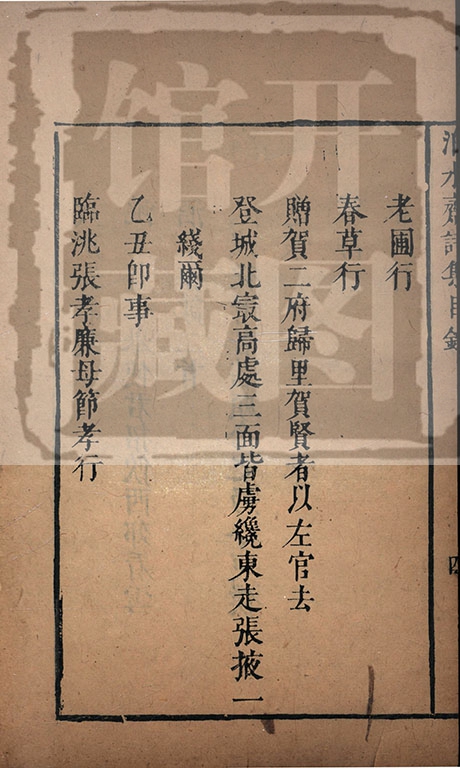 老圃行
春草行
贈賀二府歸里賀賢者以左官去
登城北寂高處三面皆虜纔東走張掖一
綫爾
乙丑卽事
臨洮張孝廉母節孝行
水齋詩集目錄
四
开图
馆藏